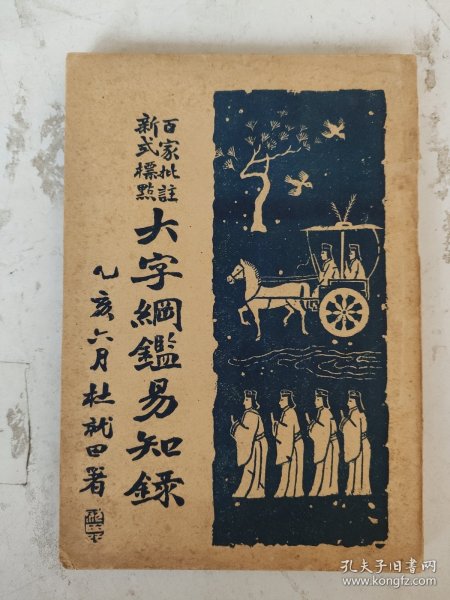 百家批註
新式標點
大字綱鑑易知錄
乙亥六月杜就田署
孔夫子旧书网
www.kongfz.com